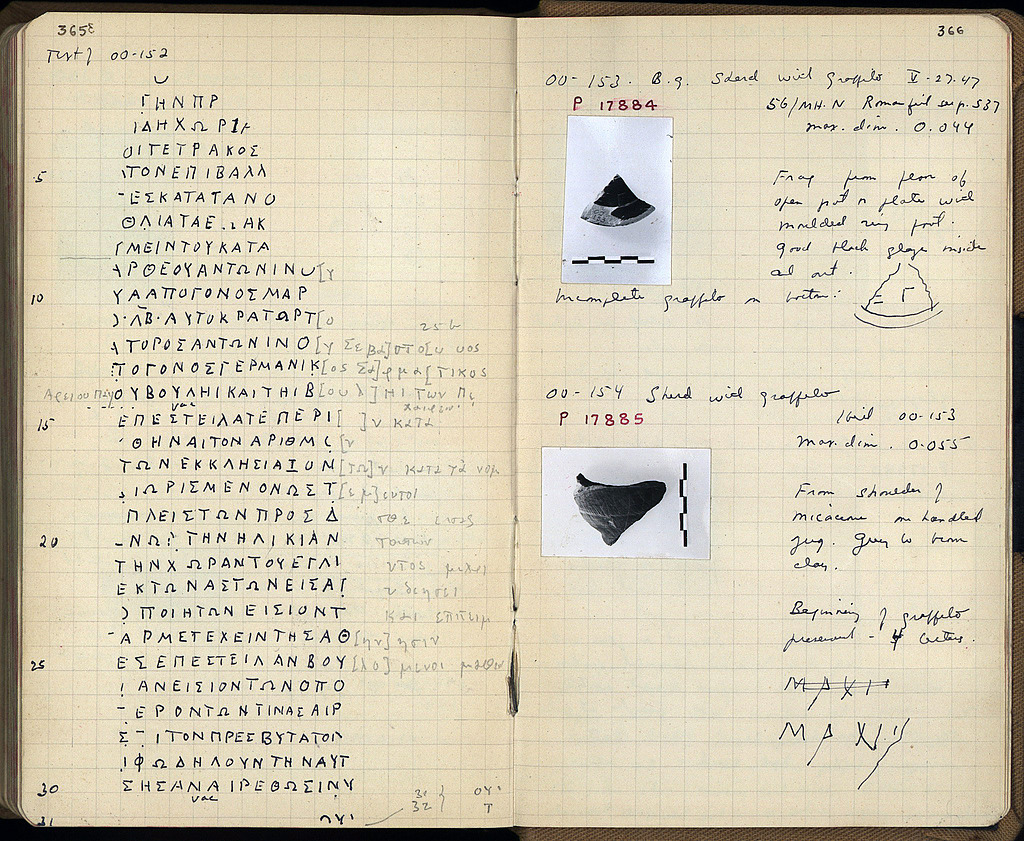 365ε
Text 00-152
ΓΗΝΠΡ
ΙΔΗΧΩΡΙΑ
ΟΙΤΕΤΡΑΚΟΣ
5 ΤΟΝΕΠΙΒΑΛΛ
ΕΣΚΑΤΑΤΑΝΟ
ΘΛΙΑΤΑΕ..ΑΚ
ΓΜΕΙΝΤΟΥΚΑΤΑ
ΑΡΘΕΟΥΑΝΤΩΝΙΝΟ[Υ
10 ΥΑΑΠΟΓΟΝΟΣΜΑΡ
Ο·ΛΒ·ΑΥΤΟΚΡΑΤΩΡΤ[ο
256
ΑΤΟΡΟΣΑΝΤΩΝΙΝΟ[υ Σεβα]στο[υ υος
ΤΟΓΟΝΟΣΓΕΡΜΑΝΙΚ[ος Σα]ρμα[τικος
ΟΥΒΟΥΛΗΙΚΑΙΤΗΙΒ[ουλ]ΗΙ των
vac
15 ΕΠΕΣΤΕΙΛΑΤΕΠΕΡΙ[ ]ν κατα
ΘΗΝΑΙΤΟΝΑΡΙΘΜ[ν
ΤΩΝΕΚΚΛΗΣΙΑΙΟΝ[τω]ν κατα τα νομ
ΙΩΡΙΣΜΕΝΟΝΩΣΤ[εμ]
ΠΛΕΙΣΤΩΝΠΡΟΣΔ
20 ΝΩ ΤΗΝΗΛΙΚΙΑΝ
ΤΗΝΧΩΡΑΝΤΟΥΕΓΛΙ ντος
ΕΚΤΩΝΑΣΤΩΝΕΙΣΑΓ
ΠΟΙΗΤΩΝΕΙΣΙΟΝΤ και επιτιμ
ΑΡΜΕΤΕΧΕΙΝΤΗΣΑΘ[ην]ησιν
25 ΕΣΕΠΕΣΤΕΙΛΑΝΒΟΥ[λο]μενοι μαθειν
ΑΝΕΙΣΙΟΝΤΩΝΟΠΟ
ΕΡΟΝΤΩΝΤΙΝΑΣΑΙΡ
Σ ΙΤΟΝΠΡΕΣΒΥΤΑΤΟΙ
ΙΦΩΔΗΛΟΥΝΤΗΝΑΥΤ
30 ΣΗΣΑΝΑΙΡΕΘΩΣΙΝΥ
vac
31 } ΟΥ
32 Τ
31 ΟΥ
366
00-153. B.g. Sherd with graffito V-27-47
P 17884
56/ΜΗ.Ν Roman fill as p. 537
max. dim. 0.044
Frag from floor of
open pot or plate with
moulded ring foot.
Good black glaze inside
and out.
Incomplete graffito on bottom:
Ε Γ
00-154 Sherd with graffito
P 17885
Ibid 00-153
max. dim. 0.055
From shoulder of
micaceous one handled
jug. Grey to brown
clay.
Beginning of graffito
preserved - 4 letters.
ΜΑΧΙ
ΜΑΧΙ